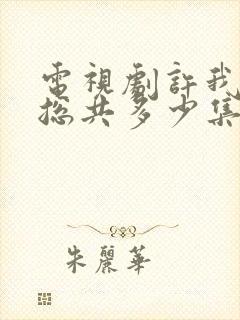 電視劇許我
總共多少集
朱麗華